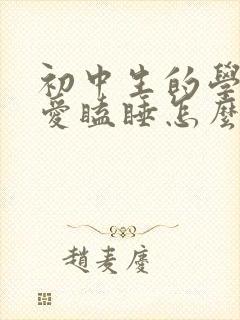 初中生的學
愛瞌睡怎麼
趙麦慶